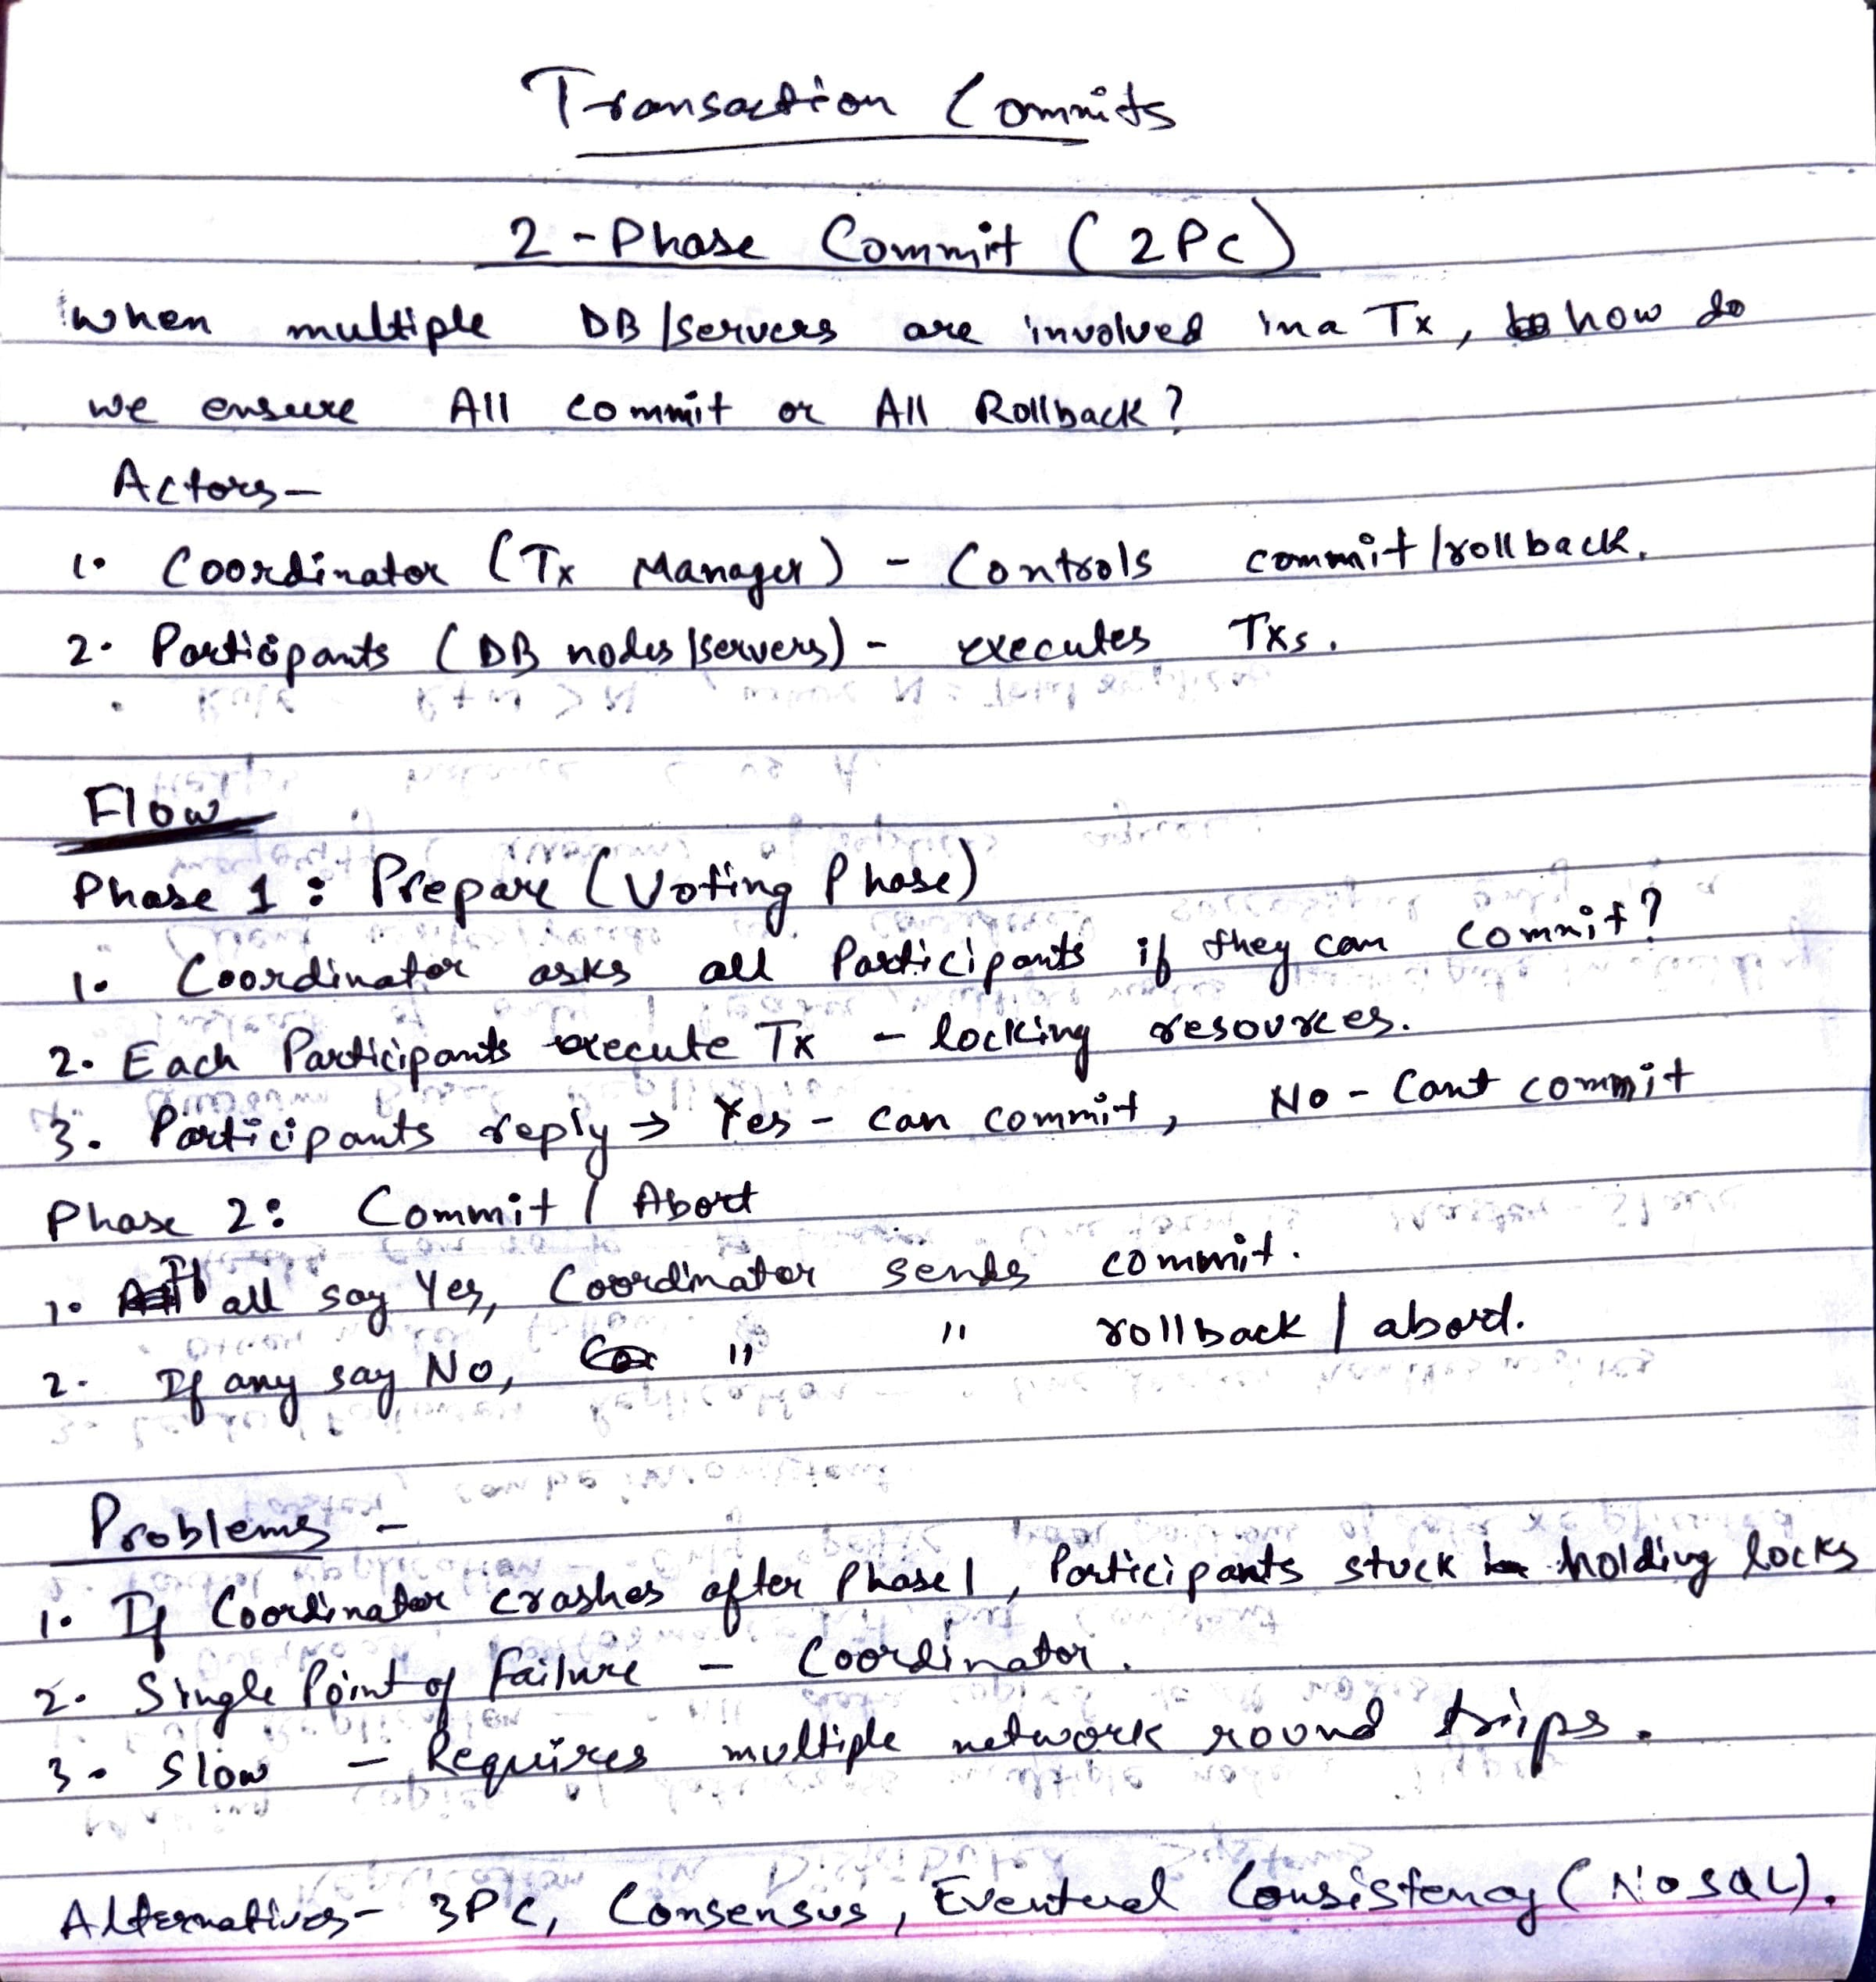 Transaction Commits
2-Phase Commit (2PC)
When multiple DB/servers are involved in a Tx, how do
we ensure All commit or All Rollback?
Actors-
1. Coordinator (Tx Manager) - Controls commit/rollback.
2. Participants (DB nodes/servers) - executes Txs.
Flow
Phase 1: Prepare (Voting Phase)
1. Coordinator asks all Participants if they can commit?
2. Each Participants execute Tx - locking resources.
3. Participants reply → Yes - can commit, No - Cant commit
Phase 2: Commit / Abort
1. If all say Yes, Coordinator sends commit.
2. If any say No, " " rollback / abort.
Problems -
1. If Coordinator crashes after Phase 1, Participants stuck holding locks
2. Single Point of Failure - Coordinator.
3. Slow - Requires multiple network round trips.
Alternatives- 3PC, Consensus, Eventual Consistency (NoSQL).